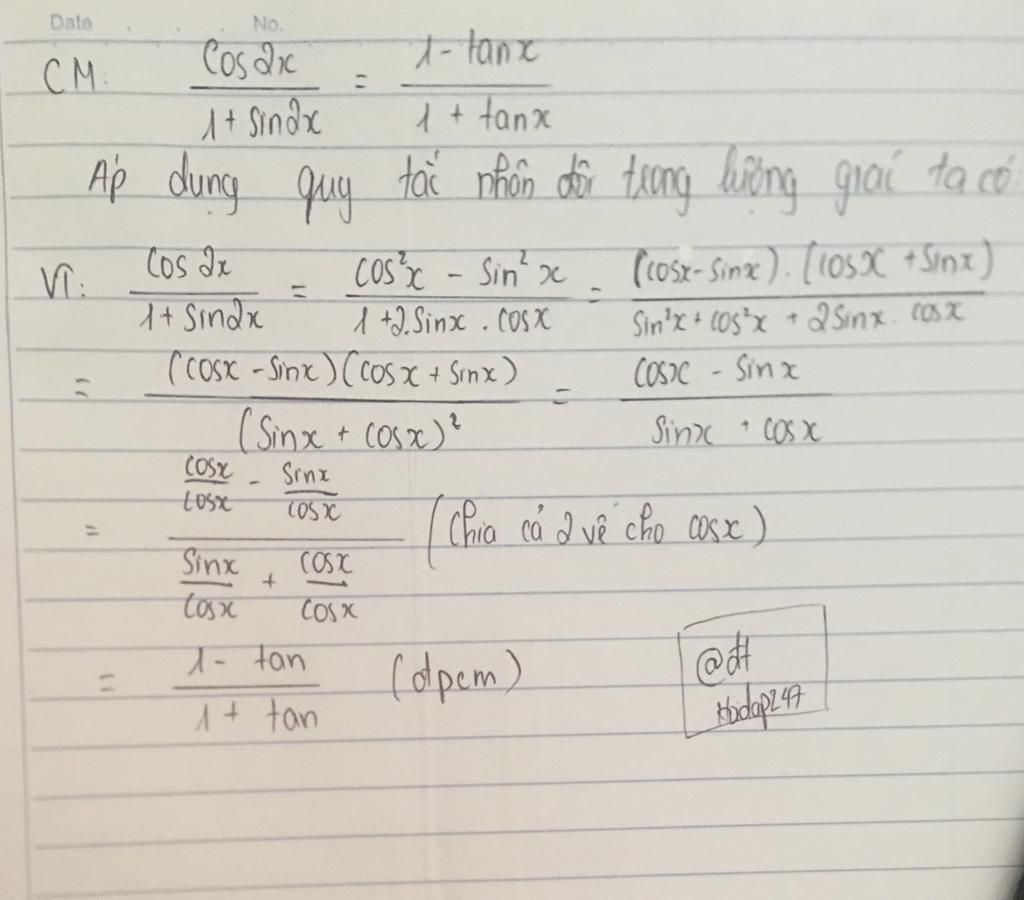 Date No.
CM: cos2x / 1 + sin2x = 1 - tanx / 1 + tanx
Áp dụng quy tắc nhân đôi trong lượng giác ta có
VT: cos2x / 1 + sin2x = cos²x - sin²x / 1 + 2.sinx . cosx = (cosx - sinx) . (cosx + sinx) / sin²x + cos²x + 2sinx . cosx
= (cosx - sinx)(cosx + sinx) / (sinx + cosx)² = cosx - sinx / sinx + cosx
= cosx/cosx - sinx/cosx / sinx/cosx + cosx/cosx (chia cả 2 vế cho cosx)
= 1 - tan / 1 + tan (đpcm)
@đt
Hoidap247